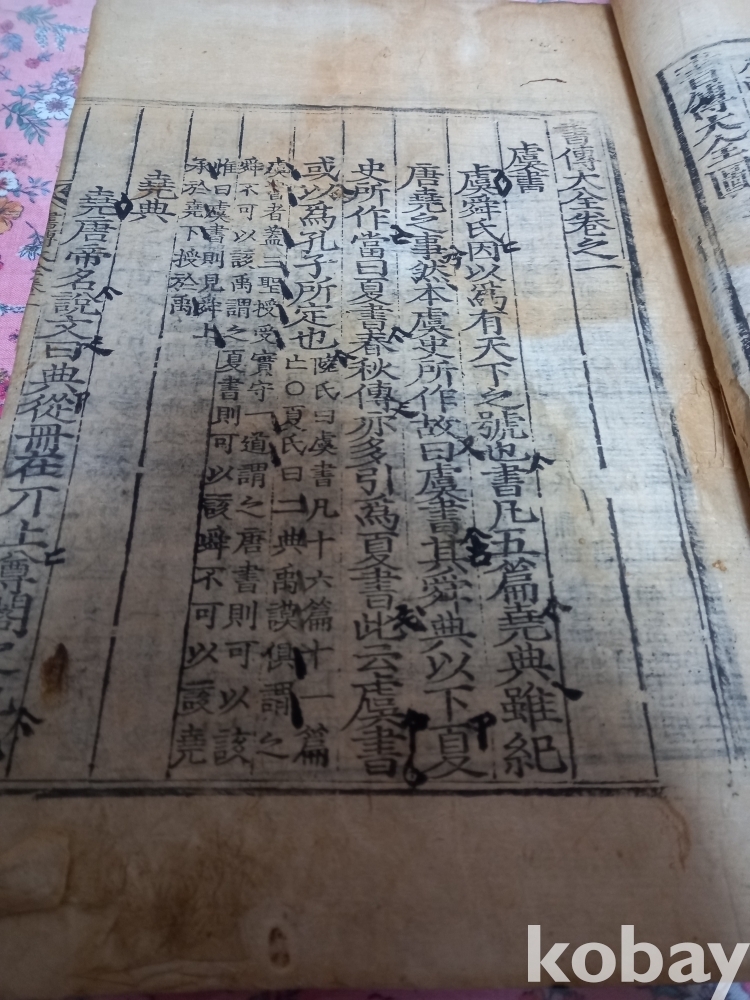 書傳大全圖
書傳大全卷之一
虞書
虞舜氏因以爲有天下之號也書凡五篇堯典雖紀
唐堯之事然本虞史所作故曰虞書其舜典以下夏
史所作當曰夏書春秋傳亦多引爲夏書此云虞書
或以爲孔子所定也陸氏曰虞書凡十六篇十一篇
亡○夏氏曰二典禹謨俱謂之
虞書者蓋三聖授受實守一道謂之唐書則可以該
舜不可以該禹謂之夏書則可以該舜不可以該堯
惟曰虞書則見舜上
承於堯下授於禹
堯典
堯唐帝名說文曰典從冊在丌上尊閣之也
kobay